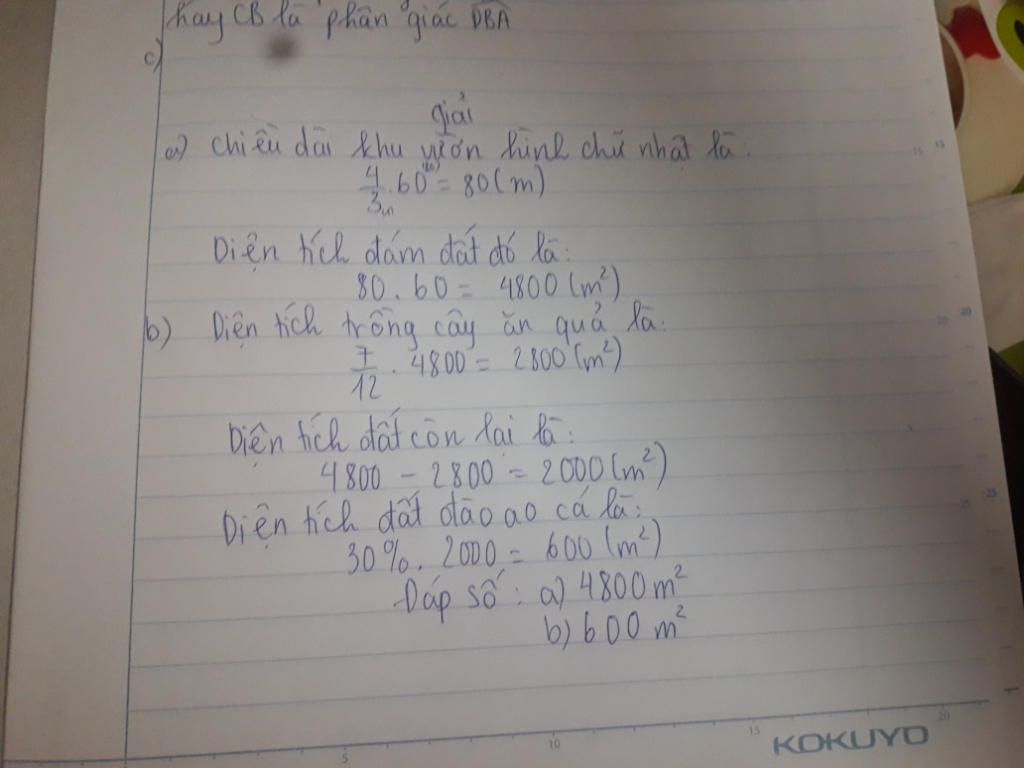 hay CB là phân giác DBA
c)
giải
a) Chiều dài khu vườn hình chữ nhật là:
4/3 . 60 = 80 (m)
Diện tích đám đất đó là:
80 . 60 = 4800 (m²)
b) Diện tích trồng cây ăn quả là:
7/12 . 4800 = 2800 (m²)
Diện tích đất còn lại là:
4800 - 2800 = 2000 (m²)
Diện tích đất đào ao cá là:
30% . 2000 = 600 (m²)
Đáp số: a) 4800 m²
b) 600 m²
5 10 15 20
KOKUYO